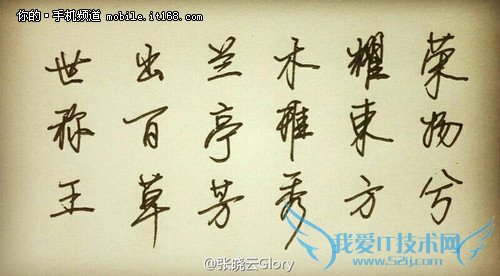 你的·手机频道 mobile.it168.com
荣扬兮
耀東方
木雅秀
兰亭芳
出百草
世称王
@张晓云Glory
我爱IT技术网
www.52ij.com